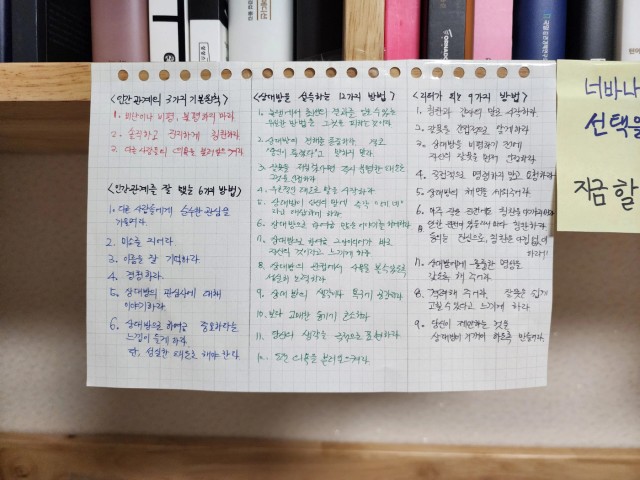 <인간관계의 3가지 기본원칙>
1. 비난이나 비평, 불평하지 마라.
2. 솔직하고 진지하게 칭찬하라
3. 다른 사람들의 욕구를 불러일으켜라
<인간관계를 잘 맺는 6가지 방법>
1. 다른 사람들에게 순수한 관심을
기울여라
2. 미소를 지어라.
3. 이름을 잘 기억하라
4. 경청하라.
5. 상대방의 관심사에 대해
이야기하라
6. 상대방으로 하여금 중요하다는
느낌이 들게 하라
단, 성실한 태도로 해야 한다
<상대방을 설득하는 12가지 방법>
1. 논쟁에서 최선의 결과를 얻을 수 있는
유일한 방법은 그것을 피하는 것이다
2. 상대방의 견해를 존중하라. 결코
"당신이 틀렸다"고 말하지 말라.
3. 잘못을 저질렀다면 즉시 분명한 태도로
그것을 인정하라
4. 우호적인 태도로 말을 시작하라
5. 상대방이 당신의 말에 즉각 "네, 네"
라고 대답하게 하라
6. 상대방으로 하여금 많은 이야기를 하게하라
7. 상대방으로 하여금 그 아이디어가 바로
자신의 것이라고 느끼게 하라
8. 상대방의 관점에서 사물을 볼 수 있도록
성실히 노력하라
9. 상대방의 생각이나 욕구에 공감하라
10. 보다 고매한 동기에 호소하라
11. 당신의 생각을 극적으로 표현하라
12. 도전 의욕을 불러일으켜라
<리더가 되는 9가지 방법>
1. 칭찬과 감사의 말로 시작하라
2. 잘못을 간접적으로 알게하라
3. 상대방을 비평하기 전에
자신의 잘못을 먼저 인정하라
4. 직접적으로 명령하지 말고 요청하라
5. 상대방의 체면을 세워주어라
6. 아주 작은 진전에도 칭찬을 아끼지 마라
또한 진전이 있을 때마다 칭찬하라
동의는 진심으로, 칭찬은 아낌 없이
하라
7. 상대방에게 훌륭한 명성을
갖도록 해 주어라
8. 격려해 주어라. 잘못은 쉽게
고칠 수 있다고 느끼게 하라
9. 당신이 제안하는 것을
상대방이 기꺼이 하도록 만들어라.
너바나
선택을
지금 할